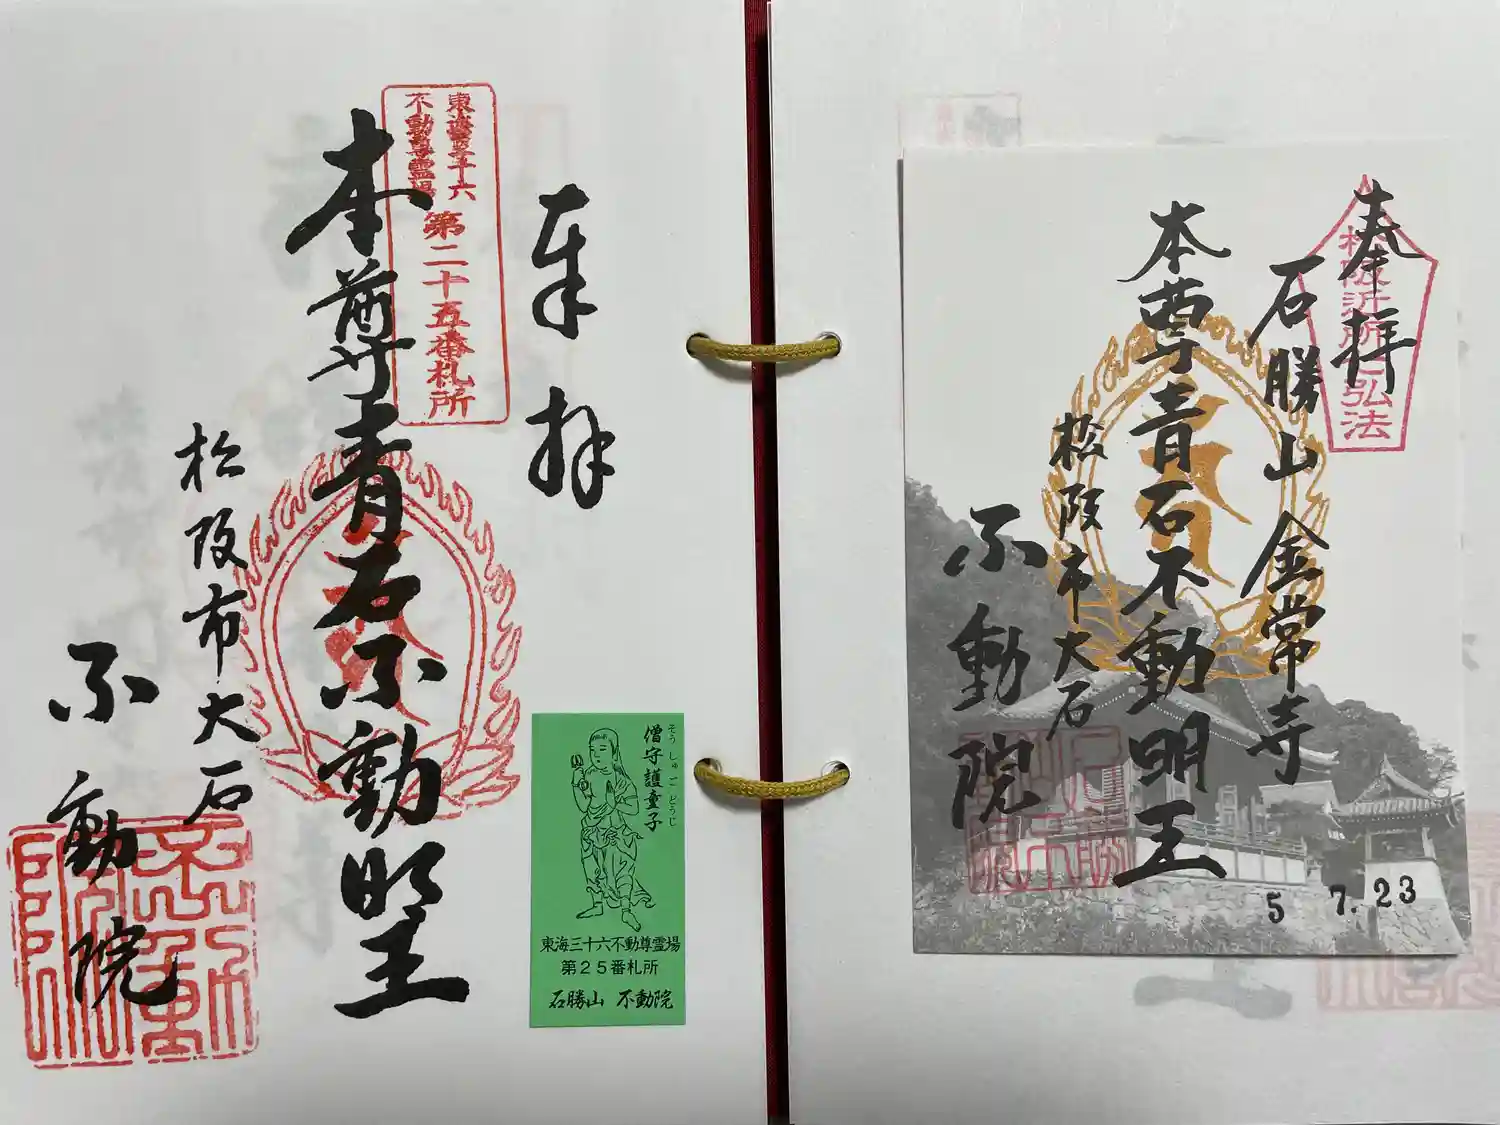 奉拝
東海三十六
不動尊霊場
第二十五番札所
本尊青石不動明王
松阪市大石
不動院
僧守護童子
そうしゅごどうじ
東海三十六不動尊霊場
第25番札所
石勝山 不動院
奉拝
石勝山 金常寺
本尊青石不動明王
松阪市大石
不動院
5 7.23